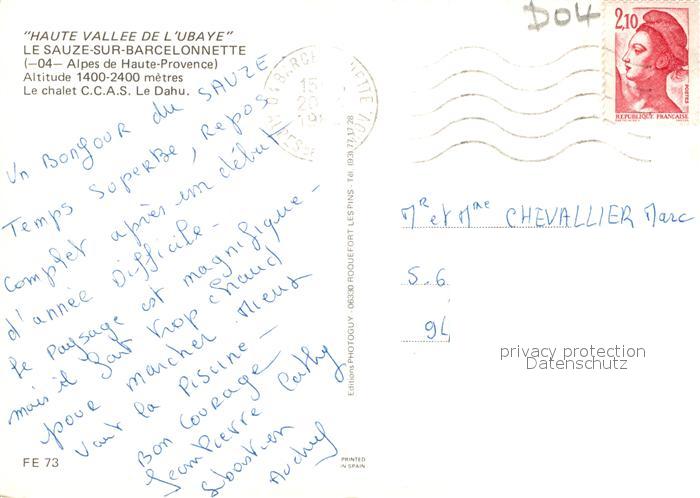 "HAUTE VALLEE DE L'UBAYE"
LE SAUZE-SUR-BARCELONNETTE
(—04— Alpes de Haute-Provence)
Altitude 1400-2400 mètres
Le chalet C.C.A.S. Le Dahu.
D04
2,10
POSTES
REPUBLIQUE FRANÇAISE
15
20
Un Bonjour du SAUZE
Temps superbe, Repos
complet après un début
d'année difficile -
le paysage est magnifique -
mais il fait trop chaud
pour marcher mieux
vaut la Piscine -
Bon Courage
Jean Pierre Cathy
Sébastien
Audrey
Editions PHOTOGUY - 06330 ROQUEFORT LES PINS - Tél. (93) 77.17.28
Mr et Mme CHEVALLIER Marc
5.6
94
privacy protection
Datenschutz
FE 73
PRINTED
IN SPAIN